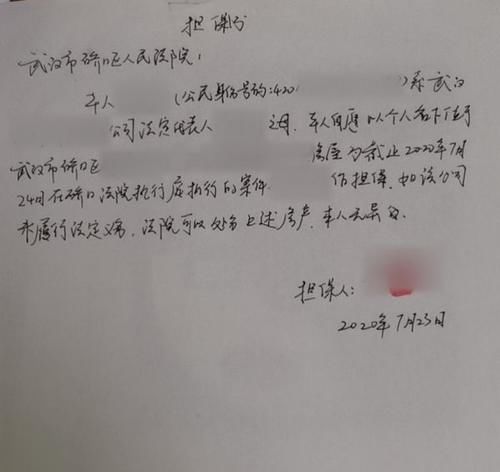 担保书
武汉市硚口区人民法院:
本人 (公民身份号码:420 )系武汉
公司法定代表人 之母,本人自愿以个人名下位于
武汉市硚口区 房屋为截止2020年7月
24日在硚口法院执行庭执行的案件 作担保,如该公司
未履行法定义务,法院可以处分上述房产,本人无异议。
担保人:
2020年7月23日